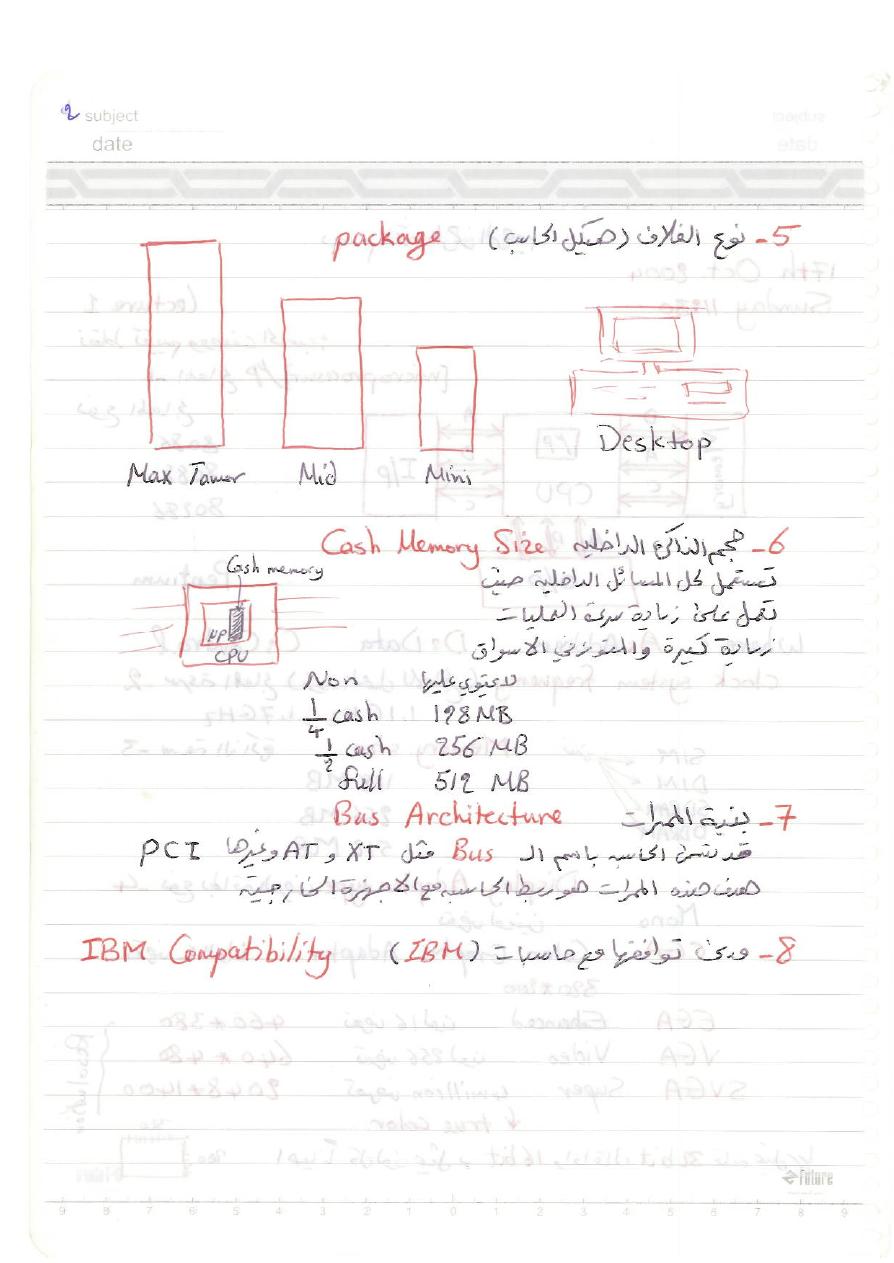 2 subject
date
5- نوع الغلاف (هيكل الحاسب) package
Max Tawer Mid Mini Desktop
6- حجم الذاكرة الداخلية Cash Memory Size
Cash memory
MP
CPU
تستعمل لحل المسائل الداخلية حيث
تعمل على زيادة سرعة العمليات
زيادة كبيرة والمتوفر في الاسواق
لا يحتوي عليها Non
1/4 cash 128 MB
1/2 cash 256 MB
full 512 MB
7- بنية الممرات Bus Architecture
قد تسمى الحاسبه باسم الـ Bus مثل XT و AT وغيرها PCI
هدف هذه الممرات هو ربط الحاسبه مع الاجهزة الخارجية
8- ومدى توافقها مع حاسبات (IBM) IBM Compatibility
future
9 8 7 6 5 4 3 2 1 0 1 2 3 4 5 6 7 8 9